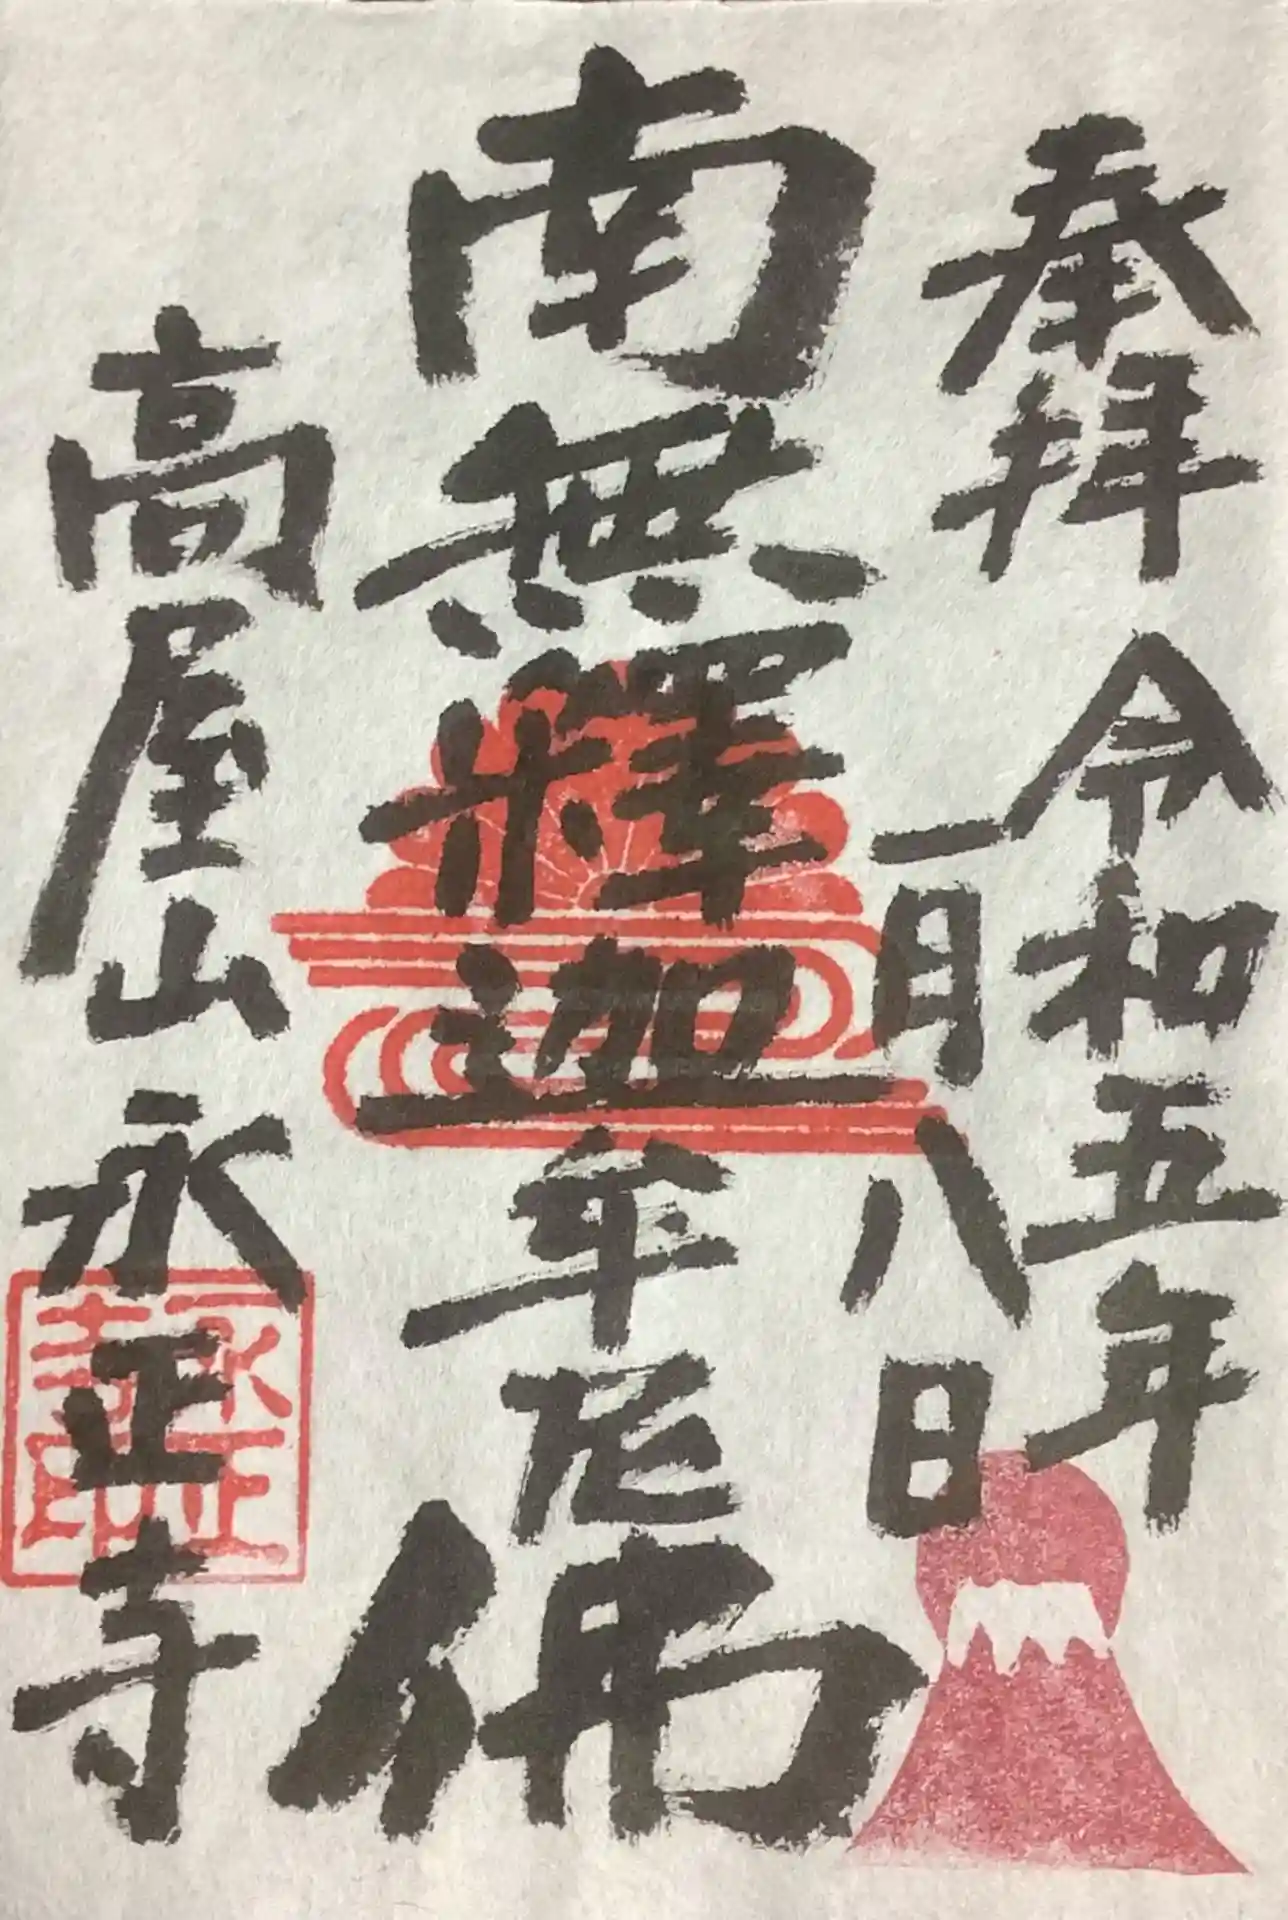 奉拝
令和五年
一月八日
南無釋迦牟尼佛
高屋山
永正寺
永正寺印